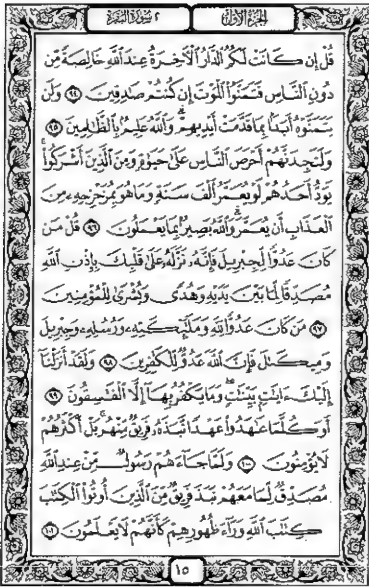 الجزء الأول
٢ سورة البقرة
قُلْ إِن كَانَتْ لَكُمُ ٱلدَّارُ ٱلْأَخِرَةُ عِندَ ٱللَّهِ خَالِصَةً مِّن
دُونِ ٱلنَّاسِ فَتَمَنَّوُا۟ ٱلْمَوْتَ إِن كُنتُمْ صَٰدِقِينَ ٩٤ وَلَن
يَتَمَنَّوْهُ أَبَدًۢا بِمَا قَدَّمَتْ أَيْدِيهِمْ ۗ وَٱللَّهُ عَلِيمٌۢ بِٱلظَّٰلِمِينَ ٩٥
وَلَتَجِدَنَّهُمْ أَحْرَصَ ٱلنَّاسِ عَلَىٰ حَيَوٰةٍ وَمِنَ ٱلَّذِينَ أَشْرَكُوا۟ ۚ
يَوَدُّ أَحَدُهُمْ لَوْ يُعَمَّرُ أَلْفَ سَنَةٍ وَمَا هُوَ بِمُزَحْزِحِهِۦ مِنَ
ٱلْعَذَابِ أَن يُعَمَّرَ ۗ وَٱللَّهُ بَصِيرٌۢ بِمَا يَعْمَلُونَ ٩٦ قُلْ مَن
كَانَ عَدُوًّا لِّجِبْرِيلَ فَإِنَّهُۥ نَزَّلَهُۥ عَلَىٰ قَلْبِكَ بِإِذْنِ ٱللَّهِ
مُصَدِّقًا لِّمَا بَيْنَ يَدَيْهِ وَهُدًى وَبُشْرَىٰ لِلْمُؤْمِنِينَ
٩٧ مَن كَانَ عَدُوًّا لِّلَّهِ وَمَلَٰٓئِكَتِهِۦ وَرُسُلِهِۦ وَجِبْرِيلَ
وَمِيكَىٰلَ فَإِنَّ ٱللَّهَ عَدُوٌّ لِّلْكَٰفِرِينَ ٩٨ وَلَقَدْ أَنزَلْنَآ
إِلَيْكَ ءَايَٰتٍۭ بَيِّنَٰتٍ ۖ وَمَا يَكْفُرُ بِهَآ إِلَّا ٱلْفَٰسِقُونَ ٩٩
أَوَكُلَّمَا عَٰهَدُوا۟ عَهْدًا نَّبَذَهُۥ فَرِيقٌ مِّنْهُم ۚ بَلْ أَكْثَرُهُمْ
لَا يُؤْمِنُونَ ١٠٠ وَلَمَّا جَآءَهُمْ رَسُولٌ مِّنْ عِندِ ٱللَّهِ
مُصَدِّقٌ لِّمَا مَعَهُمْ نَبَذَ فَرِيقٌ مِّنَ ٱلَّذِينَ أُوتُوا۟ ٱلْكِتَٰبَ
كِتَٰبَ ٱللَّهِ وَرَآءَ ظُهُورِهِمْ كَأَنَّهُمْ لَا يَعْلَمُونَ ١٠١
١٥